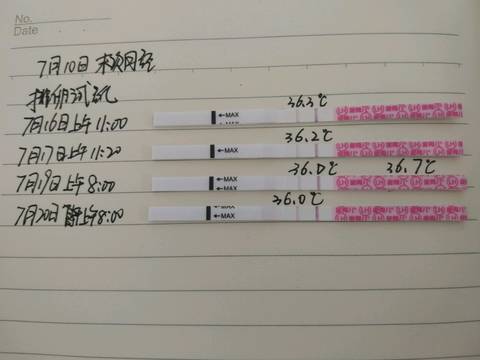 No.
Date
7月10日 末次月经
排卵试纸
7月16日上午 11:00 ←MAX 36.3℃
7月17日上午 11:20 ←MAX 36.2℃
7月19日上午 8:00 ←MAX 36.0℃ 36.7℃
7月20日 上午8:00 ←MAX 36.0℃